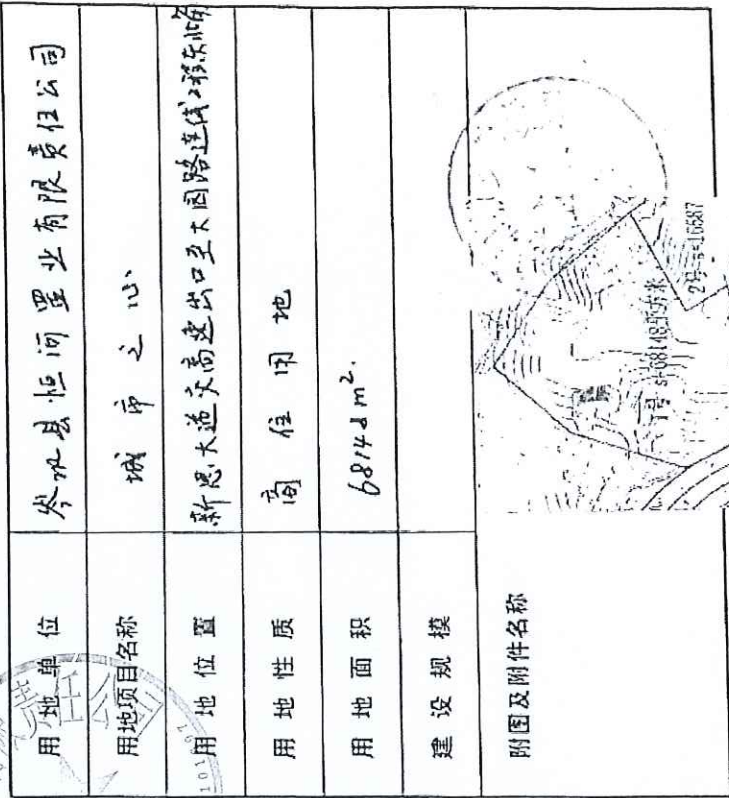 用地单位 岑巩县恒河置业有限责任公司
用地项目名称 城市之心
用地位置 新思大道交高速出口至大园路连线
用地性质 商住用地
用地面积 68148m².
建设规模
附图及附件名称
1号 s=68148平方米
2号 s=16587
101697